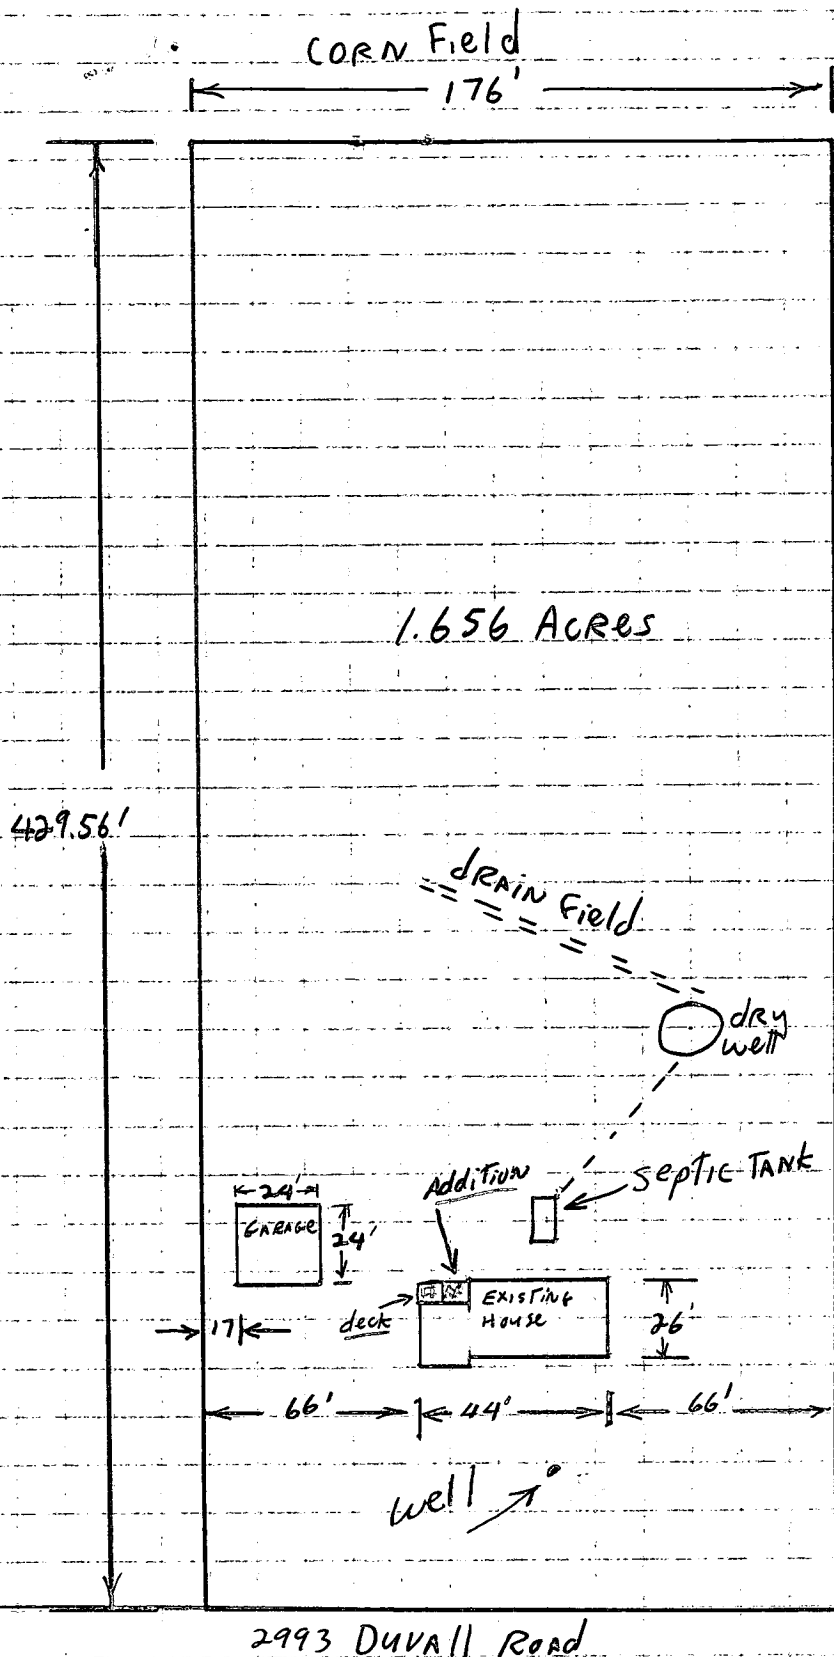 CORN Field
176'
1.656 Acres
429.56'
dRAIN Field
dRy
well
Addition
Septic TANK
24'
GARAGE
24'
deck
EXISTING
House
26'
17
66'
44'
66'
well
2993 DUVAll ROAD